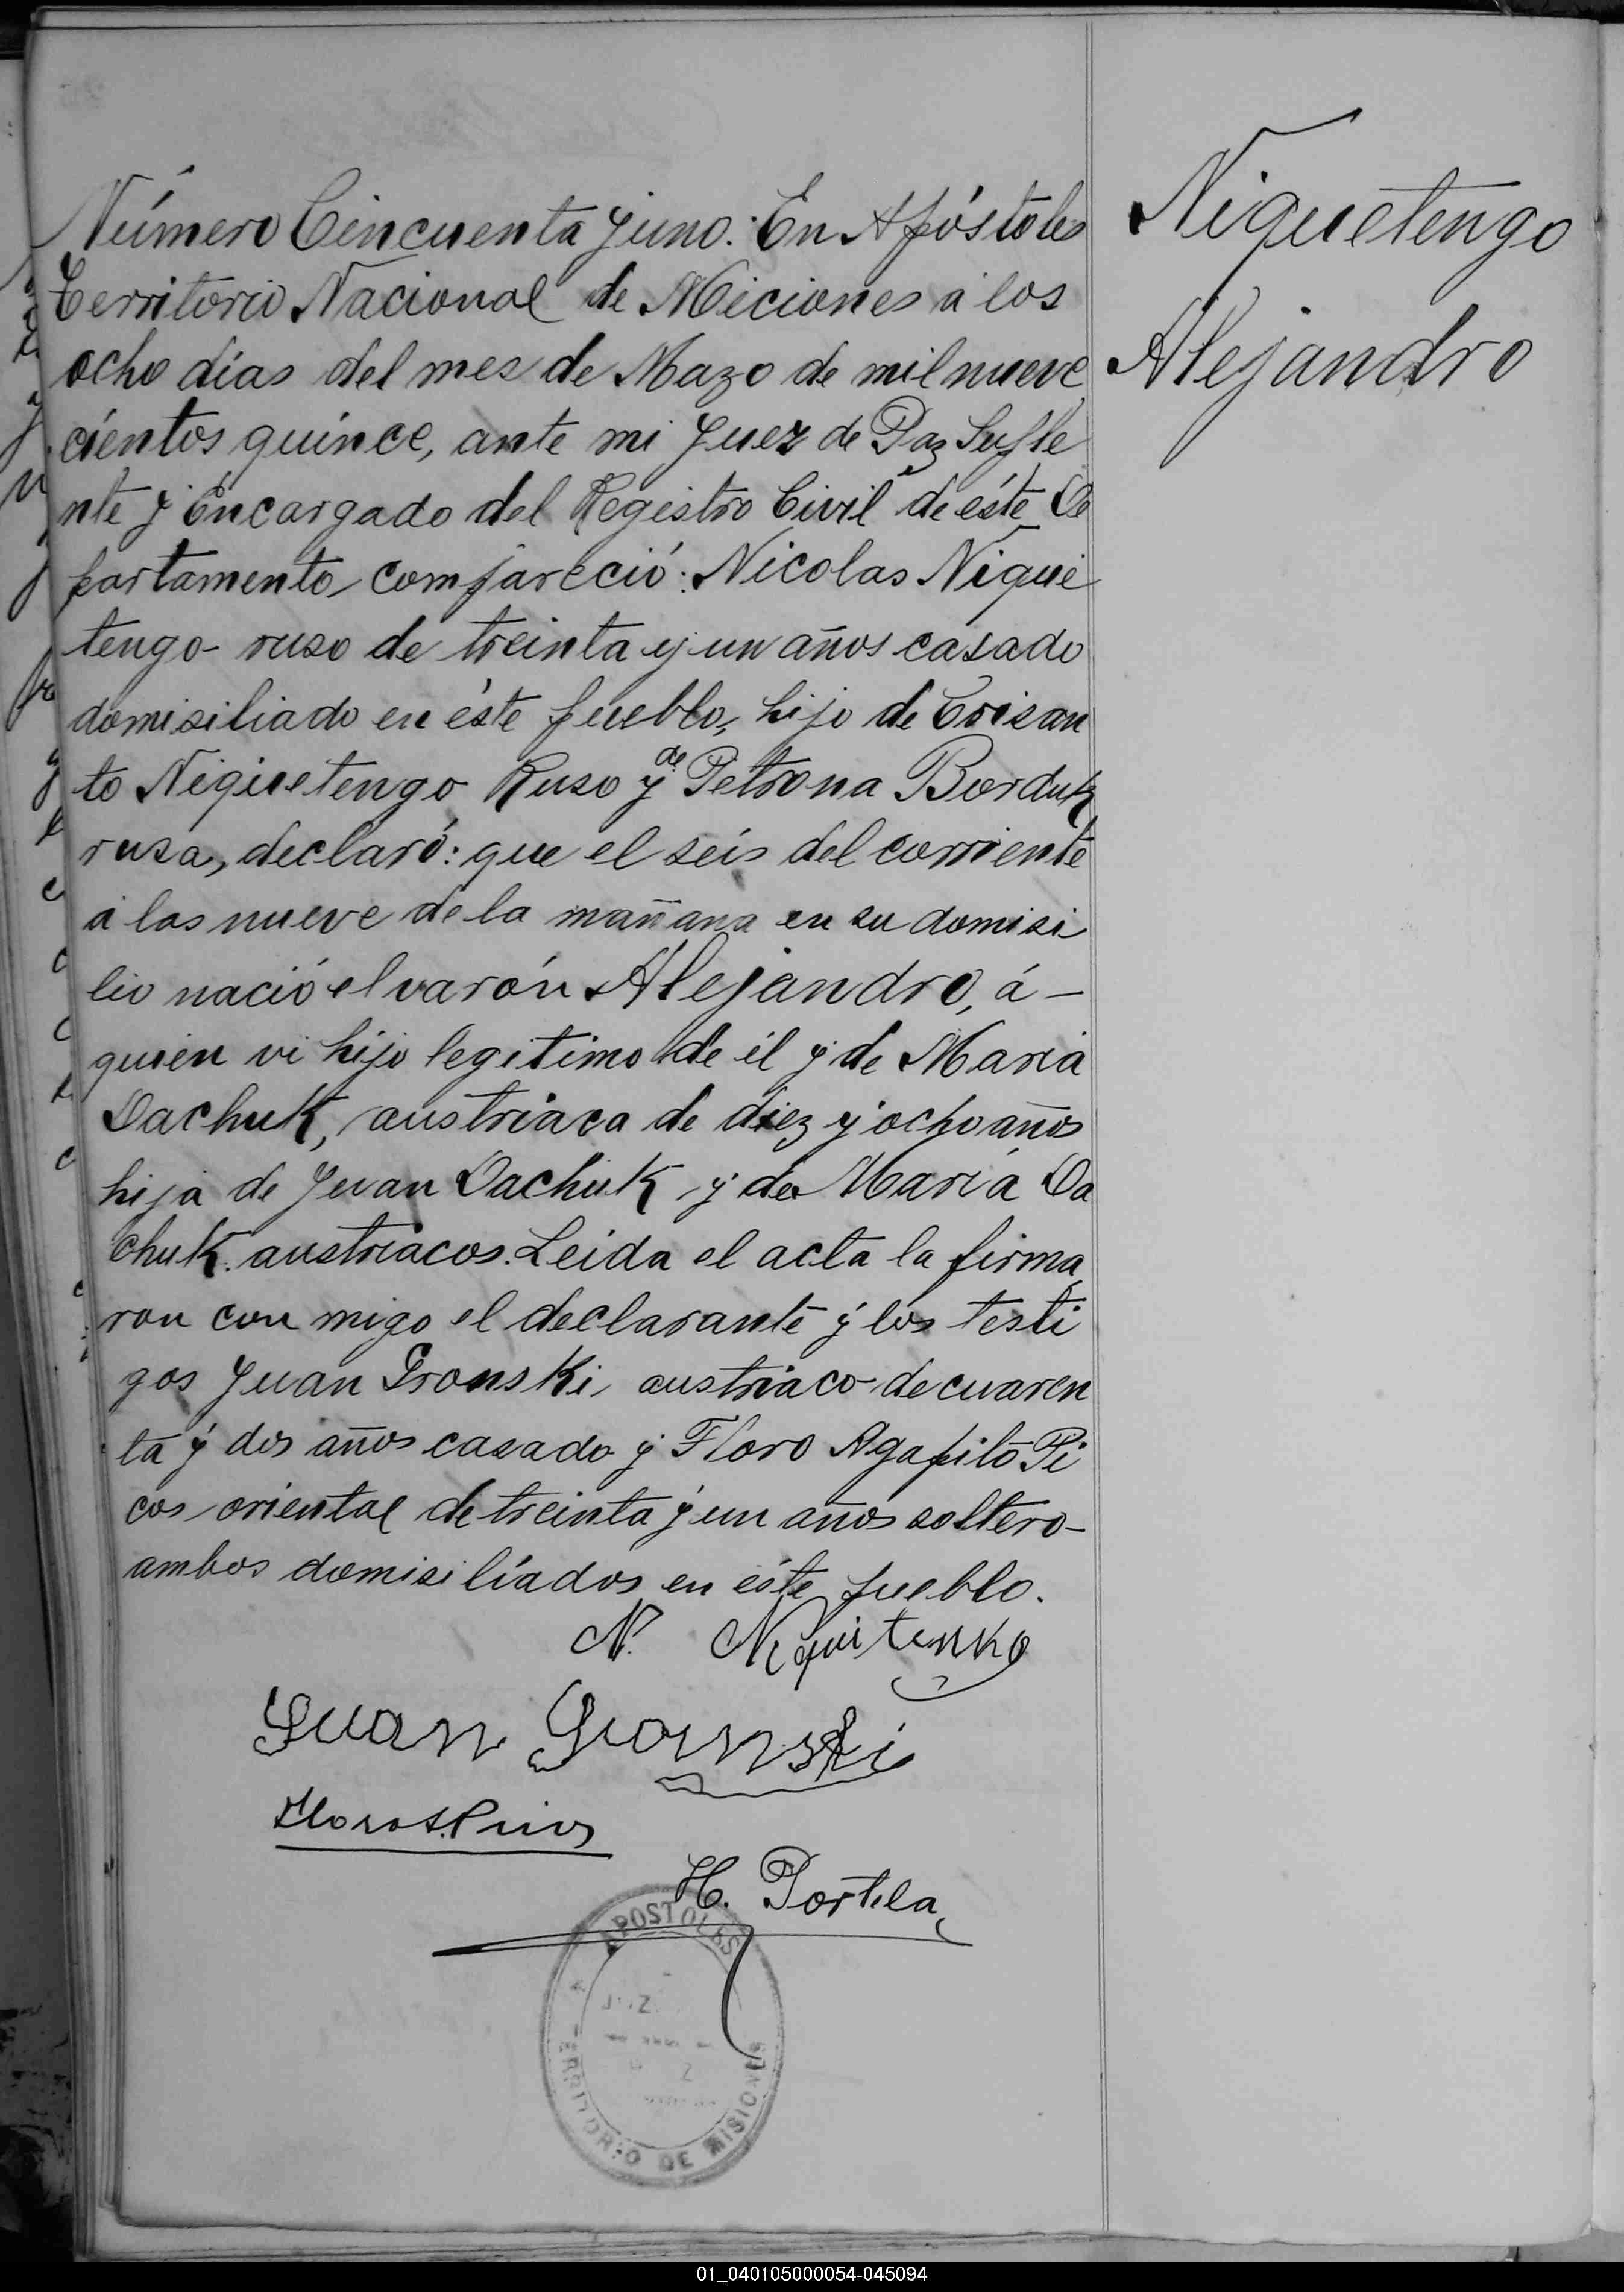 Niquetengo
Alejandro
Número Cincuenta y uno. En Apóstoles
Territorio Nacional de Miciones á los
ocho días del mes de Mazo de mil nueve
cientos quince, ante mi Juez de Paz Suple
nte y Encargado del Registro Civil de éste De
partamento compareció: Nicolas Nique
tengo- ruso de treinta y un años casado
domisiliado en éste pueblo, hijo de Crisan
to Niquetengo Ruso y de Petrona Borduk
rusa, declaró: que el seis del corriente
á las nueve de la mañana en su domisi
lio nació el varón Alejandro, á-
quien vi hijo legitimo de él y de Maria
Dachuk, austriaca de diez y ocho años
hija de Juan Dachuk y de María Da
chuk. austriacos. Leida el acta la firma
ron con migo el declarante y los testi
gos Juan Gronski, austriaco de cuaren
ta y dos años casado y Floro Agapito Pi
cos oriental de treinta y un años soltero-
ambos domisilíados en éste pueblo.
N. Niquitenko
Juan Gronski
H. Portela
APOSTOLES
TERRITORIO DE MISIONES
01_040105000054-045094